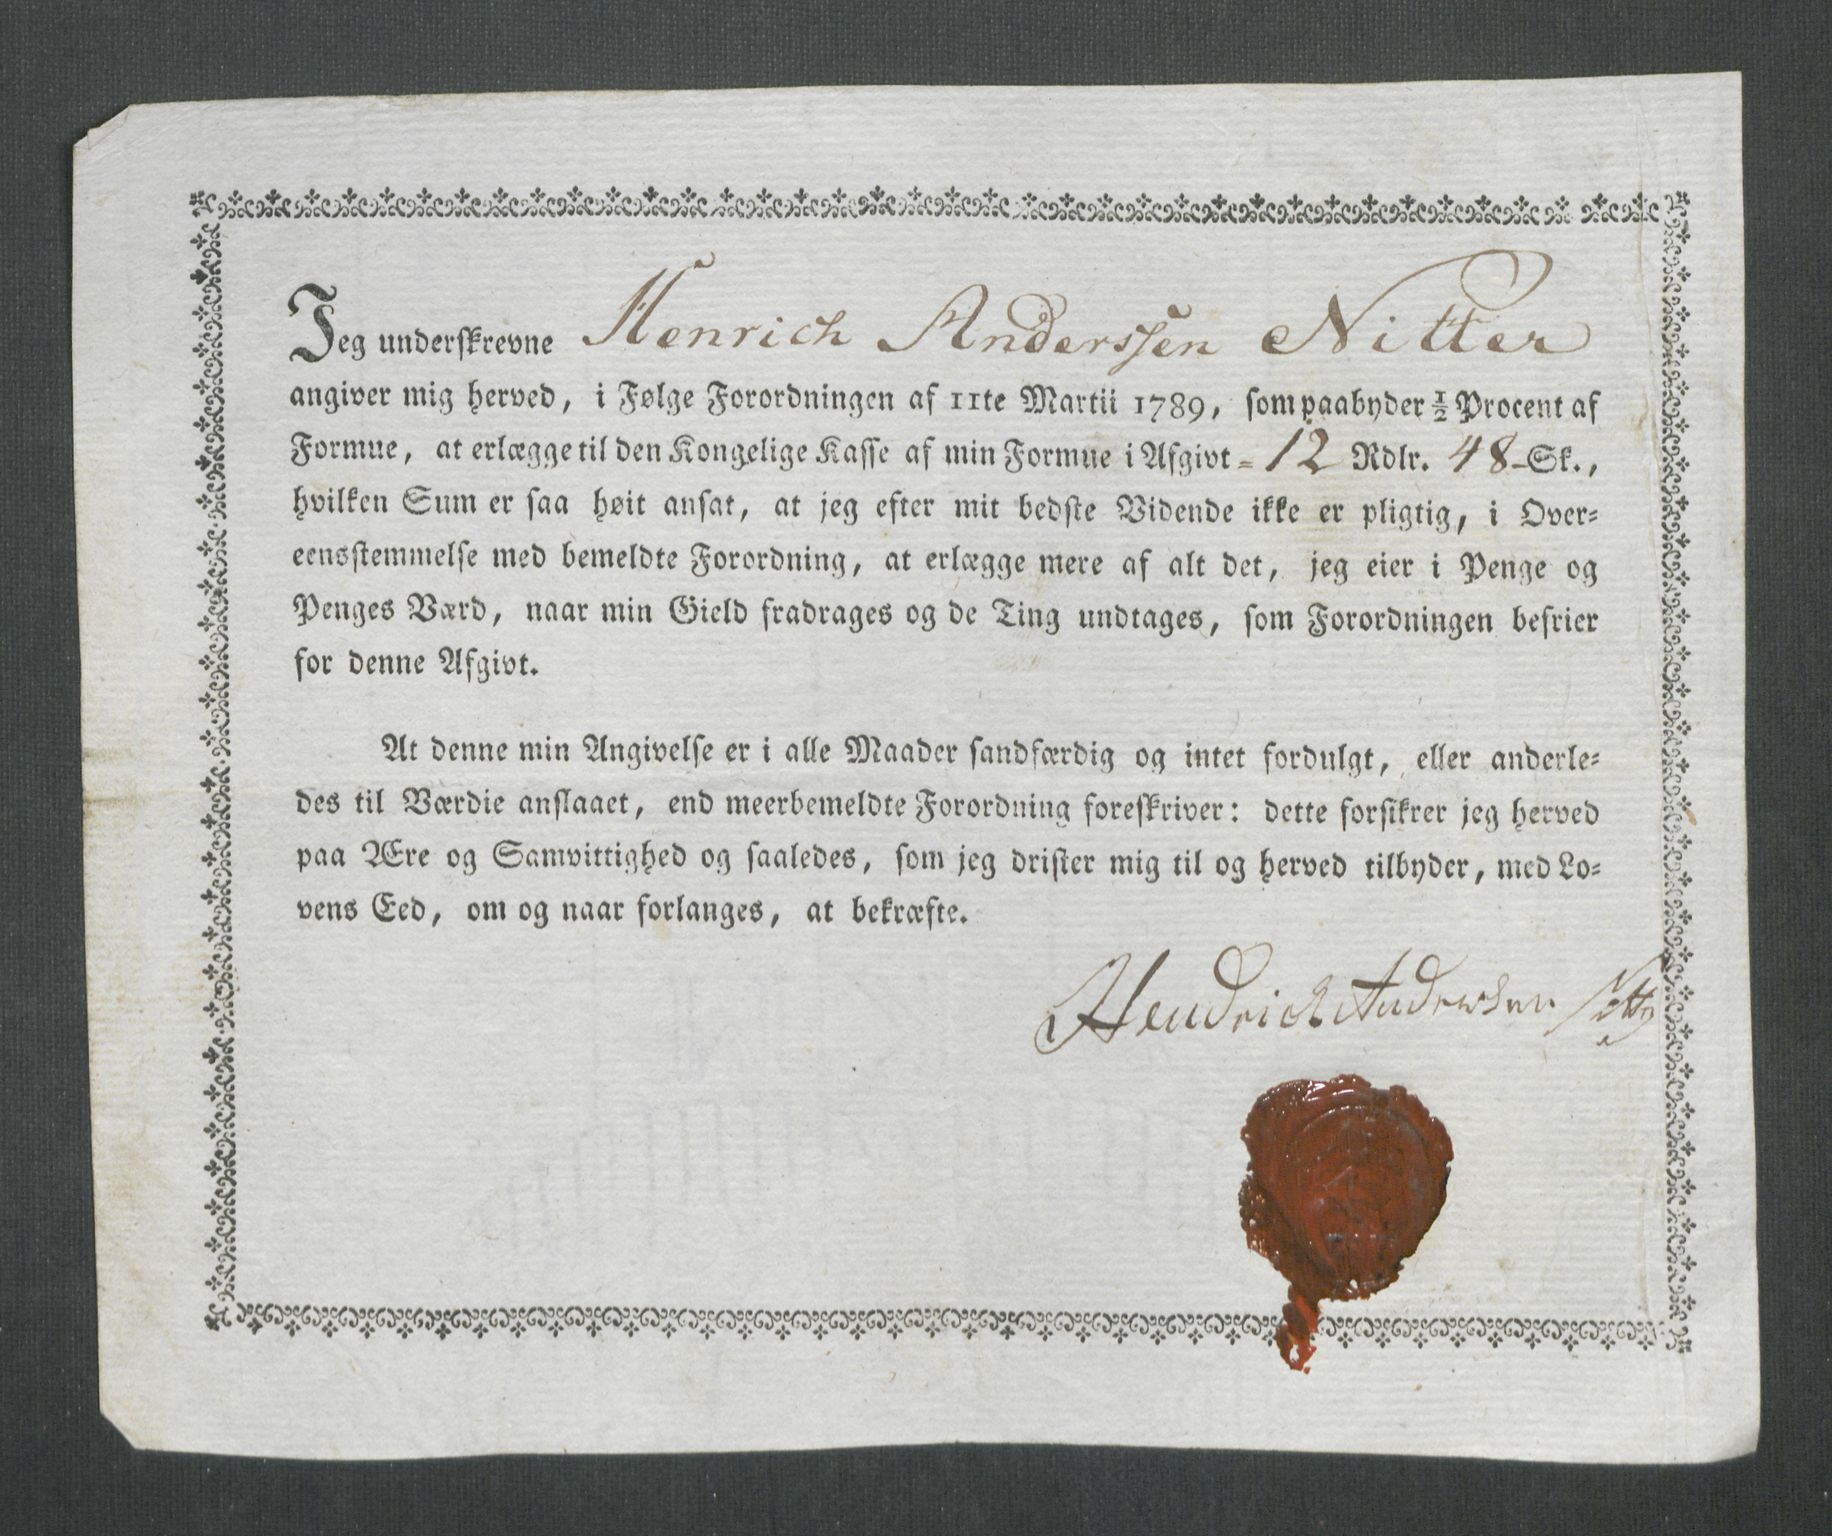 Jeg underskrevne Henrich Anderssen Nitter
angiver mig herved, i Følge Forordningen af 11te Martii 1789, som paabyder ½ Procent af
Formue, at erlægge til den Kongelige Kasse af min Formue i Afgivt = 12 Rdlr. 48 - Sk.,
hvilken Sum er saa høit ansat, at jeg efter mit bedste Vidende ikke er pligtig, i Over=
eensstemmelse med bemeldte Forordning, at erlægge mere af alt det, jeg eier i Penge og
Penges Værd, naar min Gield fradrages og de Ting undtages, som Forordningen befrier
for denne Afgivt.
At denne min Angivelse er i alle Maader sandfærdig og intet fordulgt, eller anderle=
des til Værdie anslaaet, end meerbemeldte Forordning foreskriver: dette forsikrer jeg herved
paa Ære og Samvittighed og saaledes, som jeg drister mig til og herved tilbyder, med Lo=
vens Eed, om og naar forlanges, at bekræfte.
Hendrich Andersen